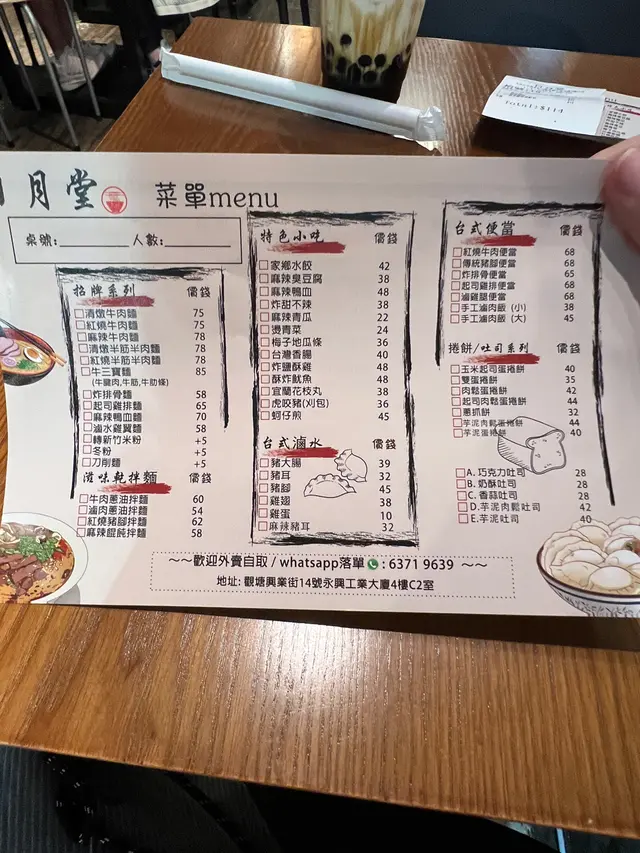 月堂
菜單menu
桌號:
人數:
招牌系列 價錢
清燉牛肉麵 75
紅燒牛肉麵 75
麻辣牛肉麵 78
清燉半筋半肉麵 78
紅燒半筋半肉麵 78
牛三寶麵 85
(牛腱肉,牛筋,牛肋條)
炸排骨麵 58
起司雞排麵 65
麻辣鴨血麵 70
滷水雞翼麵 58
轉新竹米粉 +5
冬粉 +5
刀削麵 +5
滋味乾拌麵 價錢
牛肉蔥油拌麵 60
滷肉蔥油拌麵 54
紅燒豬腳拌麵 62
麻辣餛飩拌麵 58
特色小吃 價錢
家鄉水餃 42
麻辣臭豆腐 38
麻辣鴨血 48
炸甜不辣 38
麻辣青瓜 22
燙青菜 24
梅子地瓜條 36
台灣香腸 40
炸鹽酥雞 48
酥炸魷魚 48
宜蘭花枝丸 38
虎咬豬(刈包) 36
蚵仔煎 45
台式滷水 價錢
豬大腸 39
豬耳 32
豬腳 45
雞翅 38
雞蛋 10
麻辣豬耳 32
台式便當 價錢
紅燒牛肉便當 68
傳統豬腳便當 68
炸排骨便當 65
起司雞排便當 68
滷雞腿便當 68
手工滷肉飯 (小) 38
手工滷肉飯 (大) 45
捲餅/吐司系列 價錢
玉米起司蛋捲餅 40
雙蛋捲餅 35
肉鬆蛋捲餅 42
起司肉鬆蛋捲餅 44
蔥抓餅 32
芋泥肉鬆蛋捲餅 44
芋泥蛋捲餅 40
A. 巧克力吐司 28
B. 奶酥吐司 28
C. 香蒜吐司 28
D.芋泥肉鬆吐司 42
E.芋泥吐司 40
~~歡迎外賣自取 / whatsapp落單 : 6371 9639 ~~
地址: 觀塘興業街14號永興工業大廈4樓C2室
Total:$114